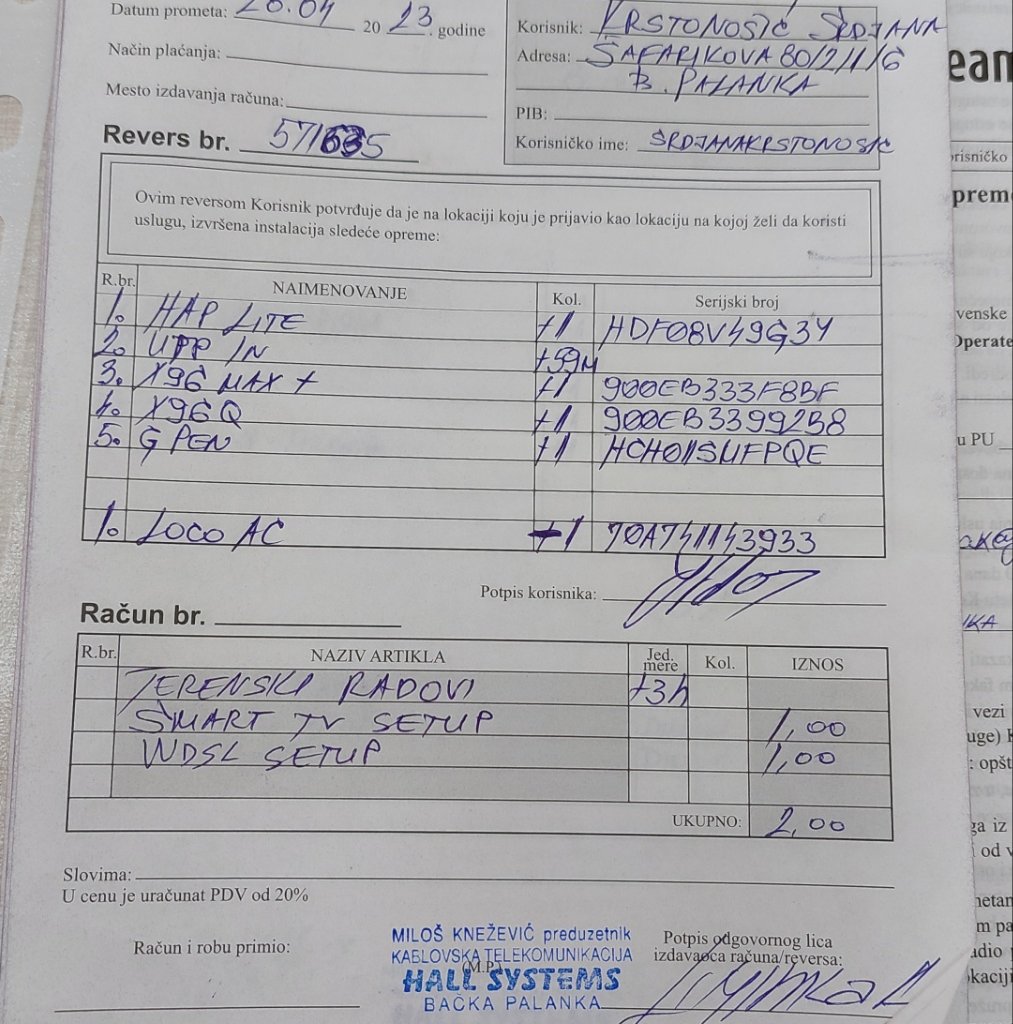 Datum prometa: 20.04 20 23. godine
Način plaćanja:
Mesto izdavanja računa:
Korisnik: KRSTONOŠIĆ SRDJANA
Adresa: ŠAFARIKOVA 80/2/1/6
B. PALANKA
PIB:
Korisničko ime: SRDJANAKRSTONOSIC
Revers br.
Ovim reversom Korisnik potvrđuje da je na lokaciji koju je prijavio kao lokaciju na kojoj želi da koristi
uslugu, izvršena instalacija sledeće opreme:
R.br. NAIMENOVANJE Kol. Serijski broj
1. HAP LITE +1 HDF08V49G34
2. UTP IN +59M
3. X96 MAX + +1 900EB333F8BF
4. X96Q +1 900EB33992B8
5. G PEN +1
1. LOCO AC +1 70A741143933
Potpis korisnika:
Račun br.
R.br. NAZIV ARTIKLA Jed. mere Kol. IZNOS
TERENSKI RADOVI +3h
SMART TV SETUP 1,00
WDSL SETUP 1,00
UKUPNO: 2,00
Slovima:
U cenu je uračunat PDV od 20%
Račun i robu primio:
MILOŠ KNEŽEVIĆ preduzetnik
KABLOVSKA TELEKOMUNIKACIJA
(M.P.)
HALL SYSTEMS
BAČKA PALANKA
Potpis odgovornog lica
izdavaoca računa/reversa:
eam
orisničko
prem
venske
Operate
u PU
vezi
uge)
: opšt
ga iz
od v
netan
m pa
adio
kaciji